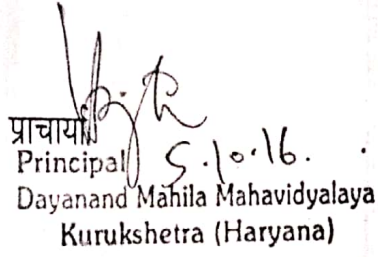 प्राचार्या
Principal 5.10.16.
Dayanand Mahila Mahavidyalaya
Kurukshetra (Haryana)